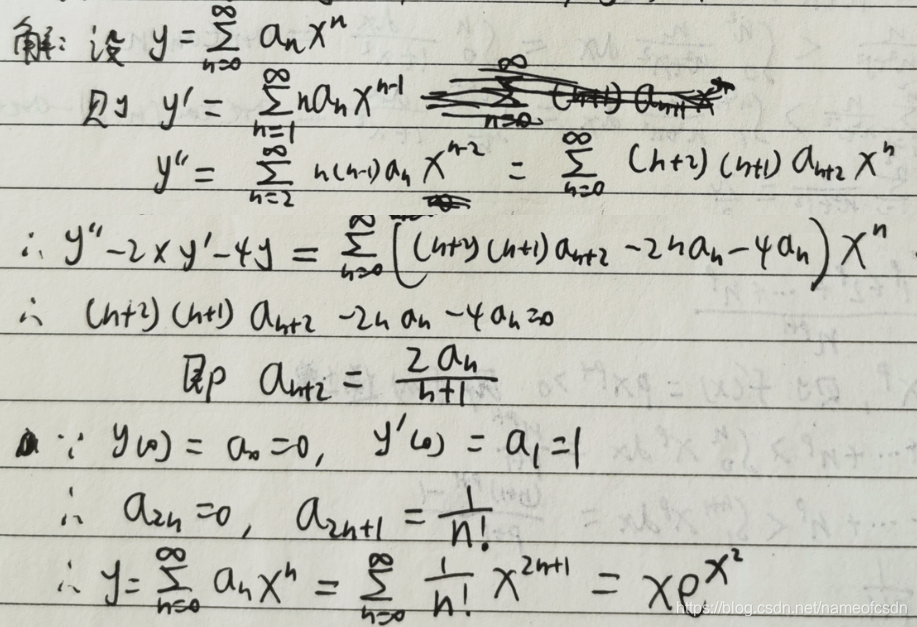 解：设 y = ∑_{n=0}^{∞} a_n x^n
则 y' = ∑_{n=1}^{∞} n a_n x^{n-1}
y'' = ∑_{n=2}^{∞} n(n-1) a_n x^{n-2} = ∑_{n=0}^{∞} (n+2)(n+1) a_{n+2} x^n
∴ y'' - 2xy' - 4y = ∑_{n=0}^{∞} ((n+2)(n+1) a_{n+2} - 2n a_n - 4a_n) x^n
∴ (n+2)(n+1) a_{n+2} - 2n a_n - 4a_n = 0
即 a_{n+2} = \frac{2a_n}{n+1}
∵ y(0) = a_0 = 0, y'(0) = a_1 = 1
∴ a_{2n} = 0, a_{2n+1} = \frac{1}{n!}
∴ y = ∑_{n=0}^{∞} a_n x^n = ∑_{n=0}^{∞} \frac{1}{n!} x^{2n+1} = x e^{x^2}
https://blog.csdn.net/nameofcsdn